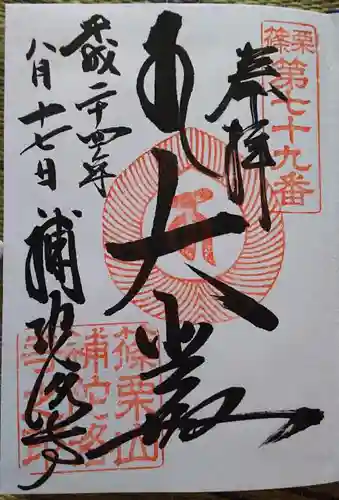 篠栗
第七十九番
奉拝
大悲殿
平成二十四年
八月十七日
補陀洛寺
篠栗山
補陀洛